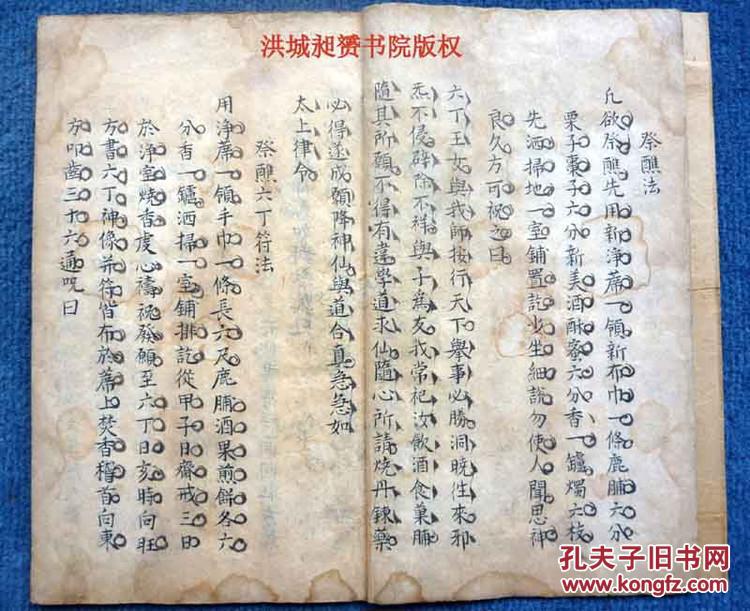 洪城昶赟书院版权
祭醮法
凡欲祭醮先用新净蓆一領新布巾一條鹿脯六分
栗子棗子六分新美酒酥蜜六分香一鑪燭六枝
先洒掃地一室鋪置訖少坐細説勿使人聞思神
良久方可祝之曰
六丁玉女與我師按行天下舉事必勝洞曉往來邪
炁不侵辟除不祥與子為友我常祀汝飲酒食菓脯
隨其所願不得有違學道求仙隨心所請燒丹鍊藥
必得遂成願降神仙與道合真急急如
太上律令
祭醮六丁符法
用淨蓆一領手巾一條長六尺鹿脯酒果煎餅各六
分香一鑪洒掃一室鋪排訖從甲子日齋戒三日
於淨室燒香虔心禱祝發願至六丁日亥時向旺
方書六丁神像并符皆布於蓆上焚香稽首向東
方叩齒三十六通咒曰
孔夫子旧书网
www.kongfz.com